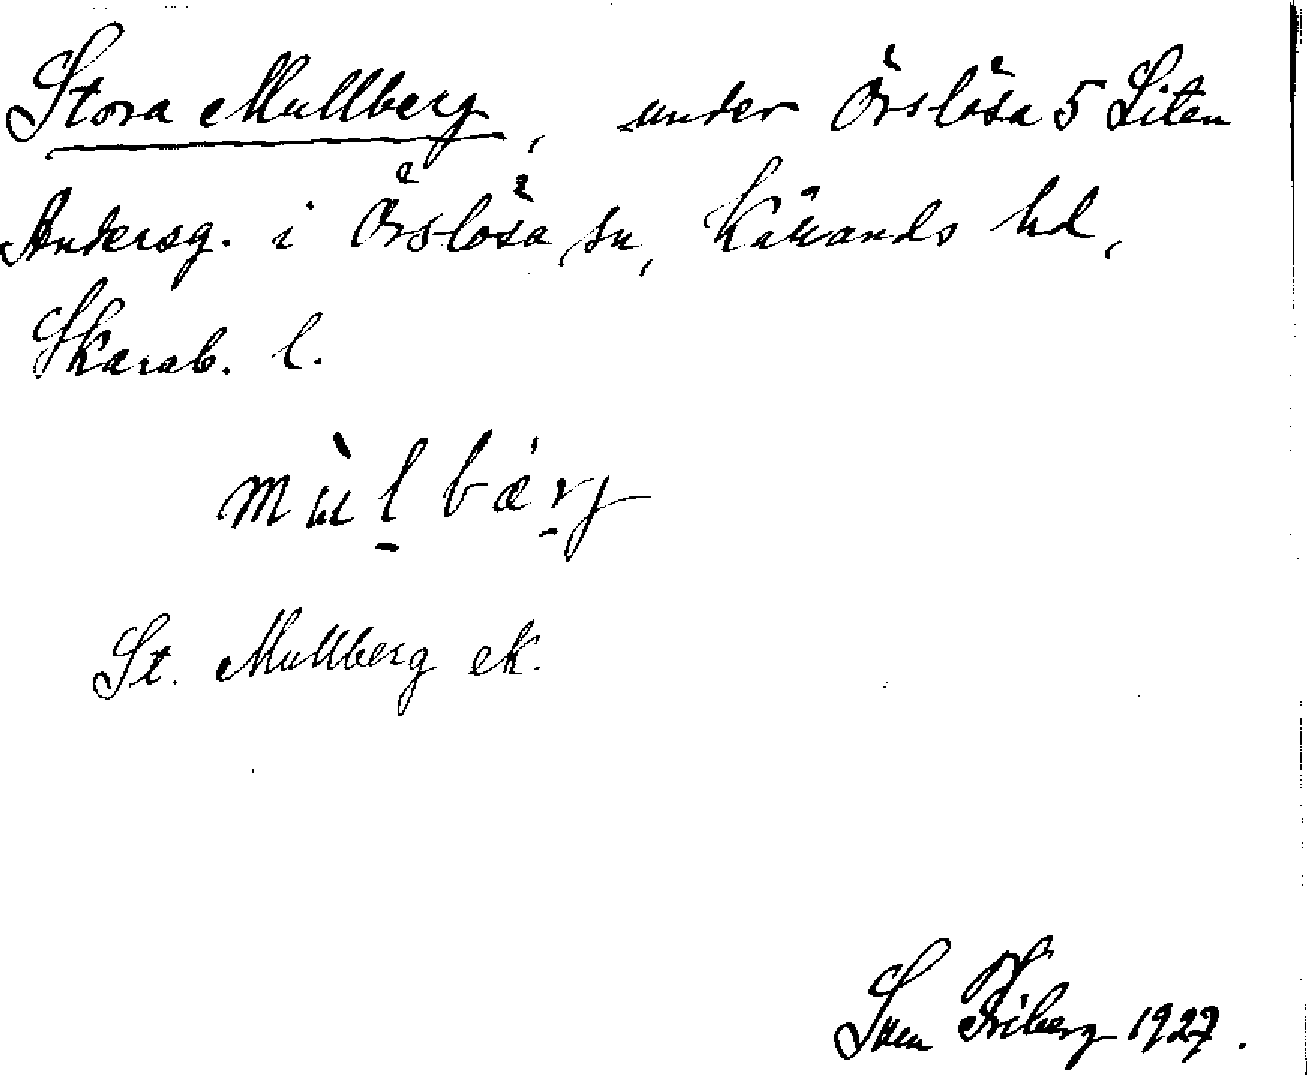 Stora Mullberg, under Örslösa 5 Liten
Andersg. i Örslösa sn, Kållands hd,
Skarab. l.
mùlbærj
St. Mullberg ek.
Sven Friberg 1927.